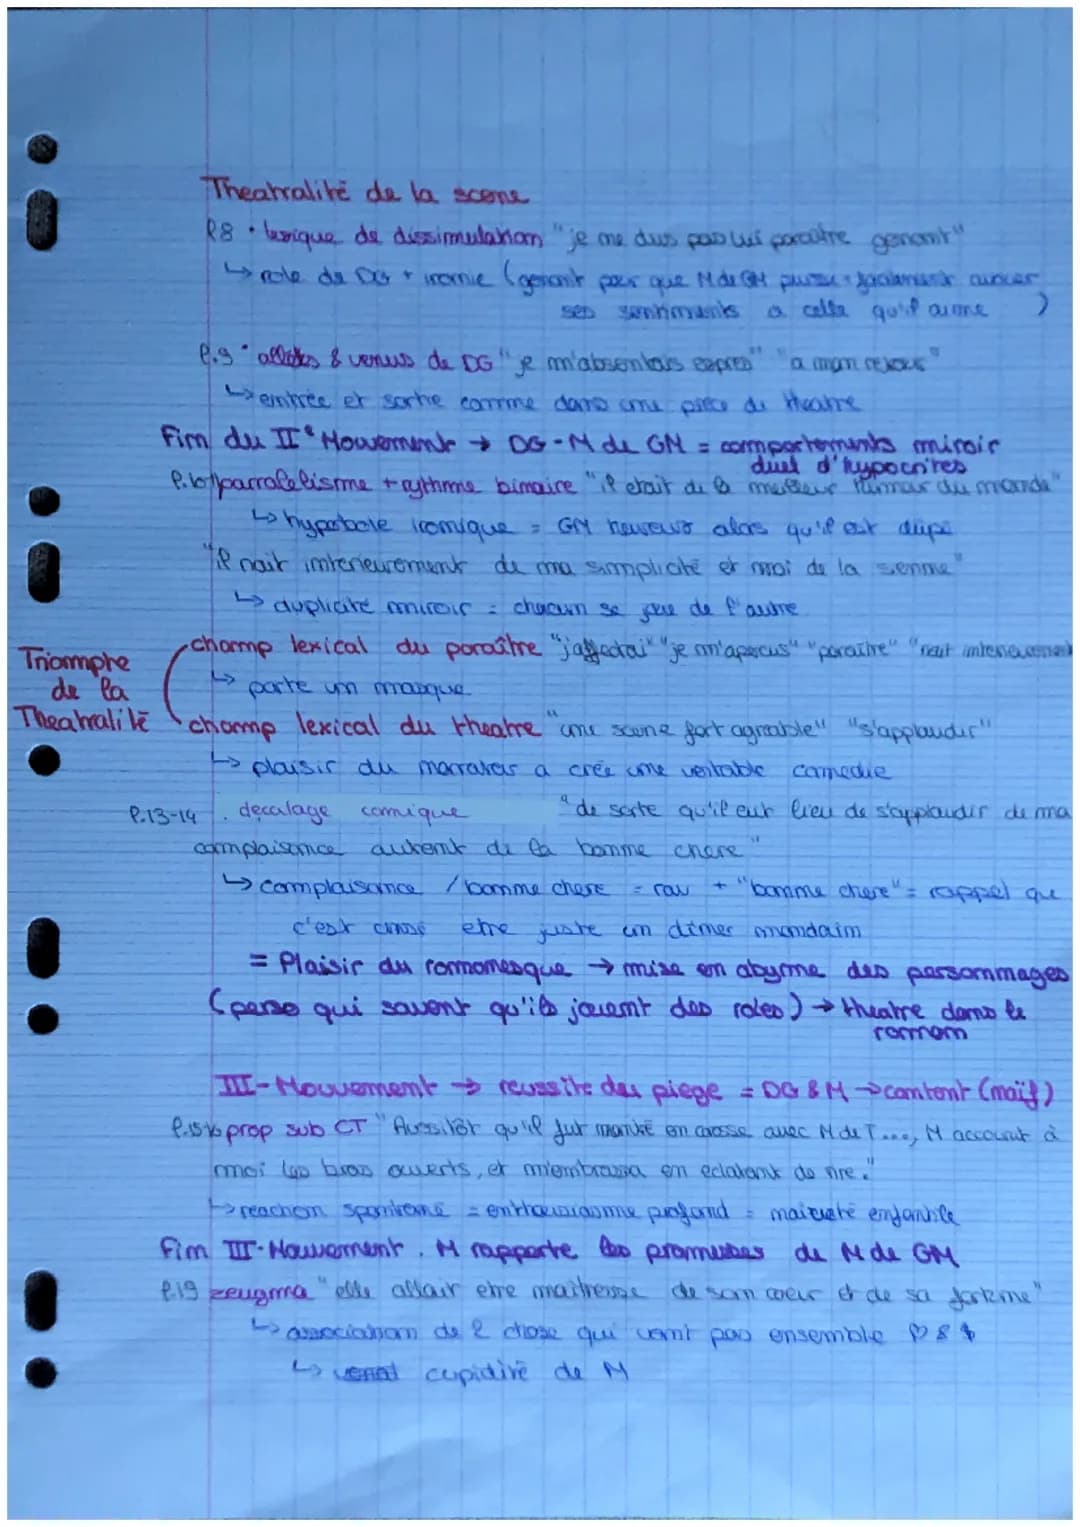 Theatralité de la scene
l.8 • lexique de dissimulation "je me dus pas lui paraitre genant"
↳ role de DG + ironie (genant pour que M de GM puisse facilement avancer
ses sentiments a celle qu'il aime )
l.9 • allées & venus de DG "je m'absentais expres" "a mon retour"
↳ entrée et sortie comme dans une piece de theatre
Fin du II° Mouvement → DG - M de GM = comportements miroir
duel d'hypocrites
parralelisme + rythme binaire "il etait de la meilleur humeur du monde"
↳ hyperbole ironique = GM heureux alors qu'il est dupé
"il riait interieurement de ma simplicité et moi de la sienne"
↳ duplicité miroir = chacun se joue de l'autre
champ lexical du paraître "j'affectai" "je m'aperçus" "paraitre" "riait interieurement
Triomphe
de la
Theatralité
↳ porte un masque
champ lexical du theatre "une scene fort agreable" "s'applaudir"
↳ plaisir du narrateur a crée une veritable comedie
l.13-14 . decalage comique "de sorte qu'il eut lieu de s'applaudir de ma
complaisance autant de la bonne chere"
↳ complaisance / bonne chere = + "bonne chere" = rappel que
c'est censé etre juste un diner mondain
= Plaisir du romanesque → mise en abyme des personnages
(perso qui savent qu'ils jouent des roles) → theatre dans le
roman
III - Mouvement → reussite du piege = DG & M → content (naïf)
prop sub CT "Aussitôt qu'il fut monté en carosse avec M de T..., M accourut à
moi les bras ouverts, et m'embrassa en eclatant de rire."
↳ reaction spontané = enthousiasme profond = naiveté enfantile
Fin III - Mouvement . M rapporte les promesses de M de GM
l.19 zeugma "elle allait etre maitresse de son coeur et de sa fortune"
↳ association de 2 chose qui vont pas ensemble ♡ & $
↳ cupidité de M